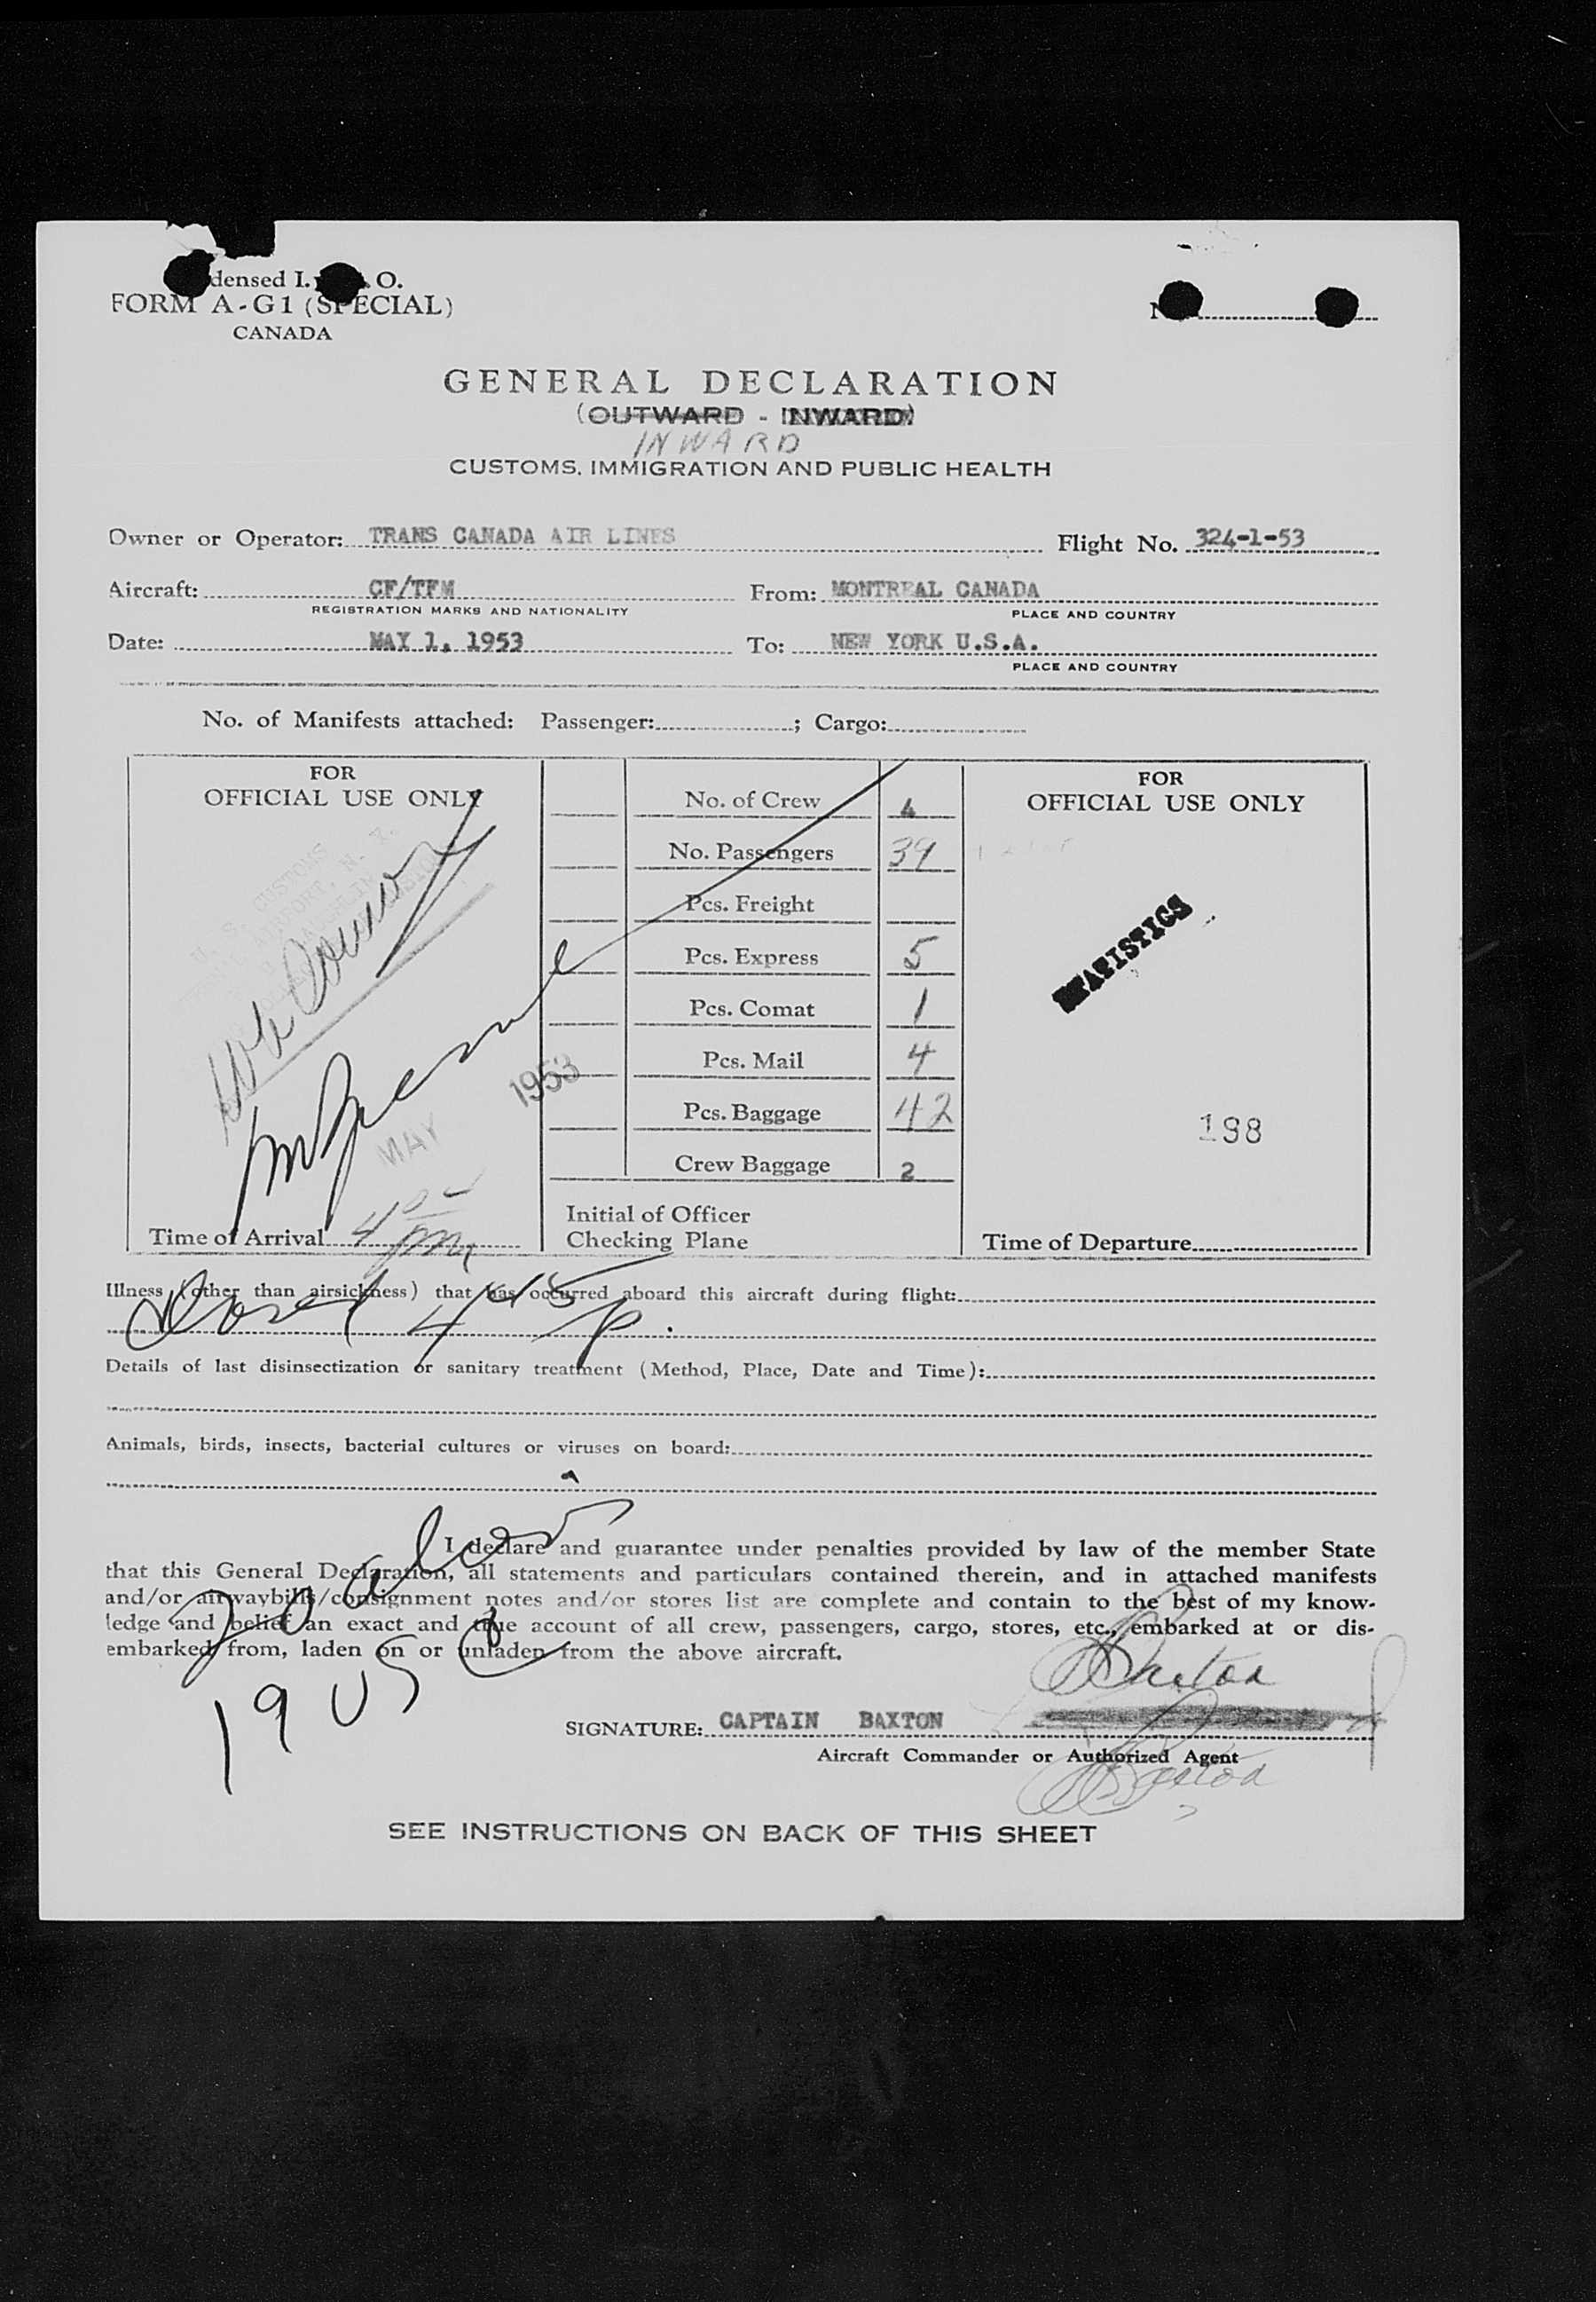 densed I. O.
FORM A-G1 (SPECIAL)
CANADA
GENERAL DECLARATION
(OUTWARD - INWARD)
INWARD
CUSTOMS, IMMIGRATION AND PUBLIC HEALTH
Owner or Operator: TRANS CANADA AIR LINES Flight No. 324-1-53
Aircraft: CF/TFM From: MONTREAL CANADA
REGISTRATION MARKS AND NATIONALITY PLACE AND COUNTRY
Date: MAY 1, 1953 To: NEW YORK U.S.A.
PLACE AND COUNTRY
No. of Manifests attached: Passenger: ; Cargo:
FOR
OFFICIAL USE ONLY
U. S. CUSTOMS
MAY 1953
Time of Arrival 4 00 pm
No. of Crew 4
No. Passengers 39
Pcs. Freight
Pcs. Express 5
Pcs. Comat 1
Pcs. Mail 4
Pcs. Baggage 42
Crew Baggage 2
Initial of Officer
Checking Plane
FOR
OFFICIAL USE ONLY
STATISTICS
198
Time of Departure
Illness (other than airsickness) that has occurred aboard this aircraft during flight:
Closed 4 45 p.
Details of last disinsectization or sanitary treatment (Method, Place, Date and Time):
Animals, birds, insects, bacterial cultures or viruses on board:
I declare and guarantee under penalties provided by law of the member State
that this General Declaration, all statements and particulars contained therein, and in attached manifests
and/or airwaybills/consignment notes and/or stores list are complete and contain to the best of my know-
ledge and belief an exact and true account of all crew, passengers, cargo, stores, etc., embarked at or dis-
embarked from, laden on or unladen from the above aircraft.
20 alien
19 USC
Baxton
SIGNATURE: CAPTAIN BAXTON
Aircraft Commander or Authorized Agent
Baxton
SEE INSTRUCTIONS ON BACK OF THIS SHEET